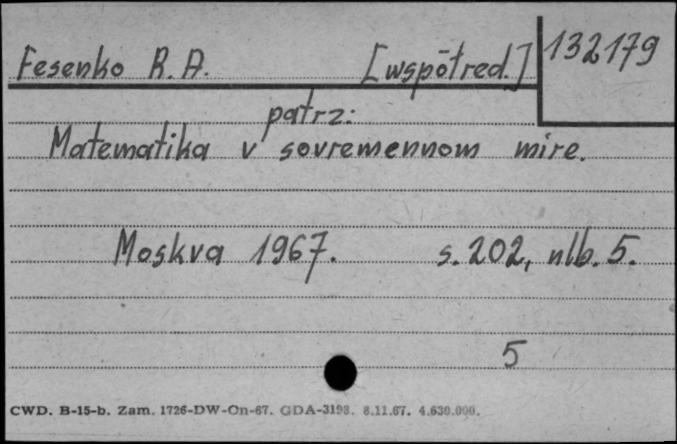 Fesenko R. A. [współred.] 132179
patrz:
Matematika v sovremennom mire.
Moskva 1967. s. 202, nlb. 5.
5
CWD. B-15-b. Zam. 1726-DW-On-67. GDA-3198. 8.11.67. 4.630.000.